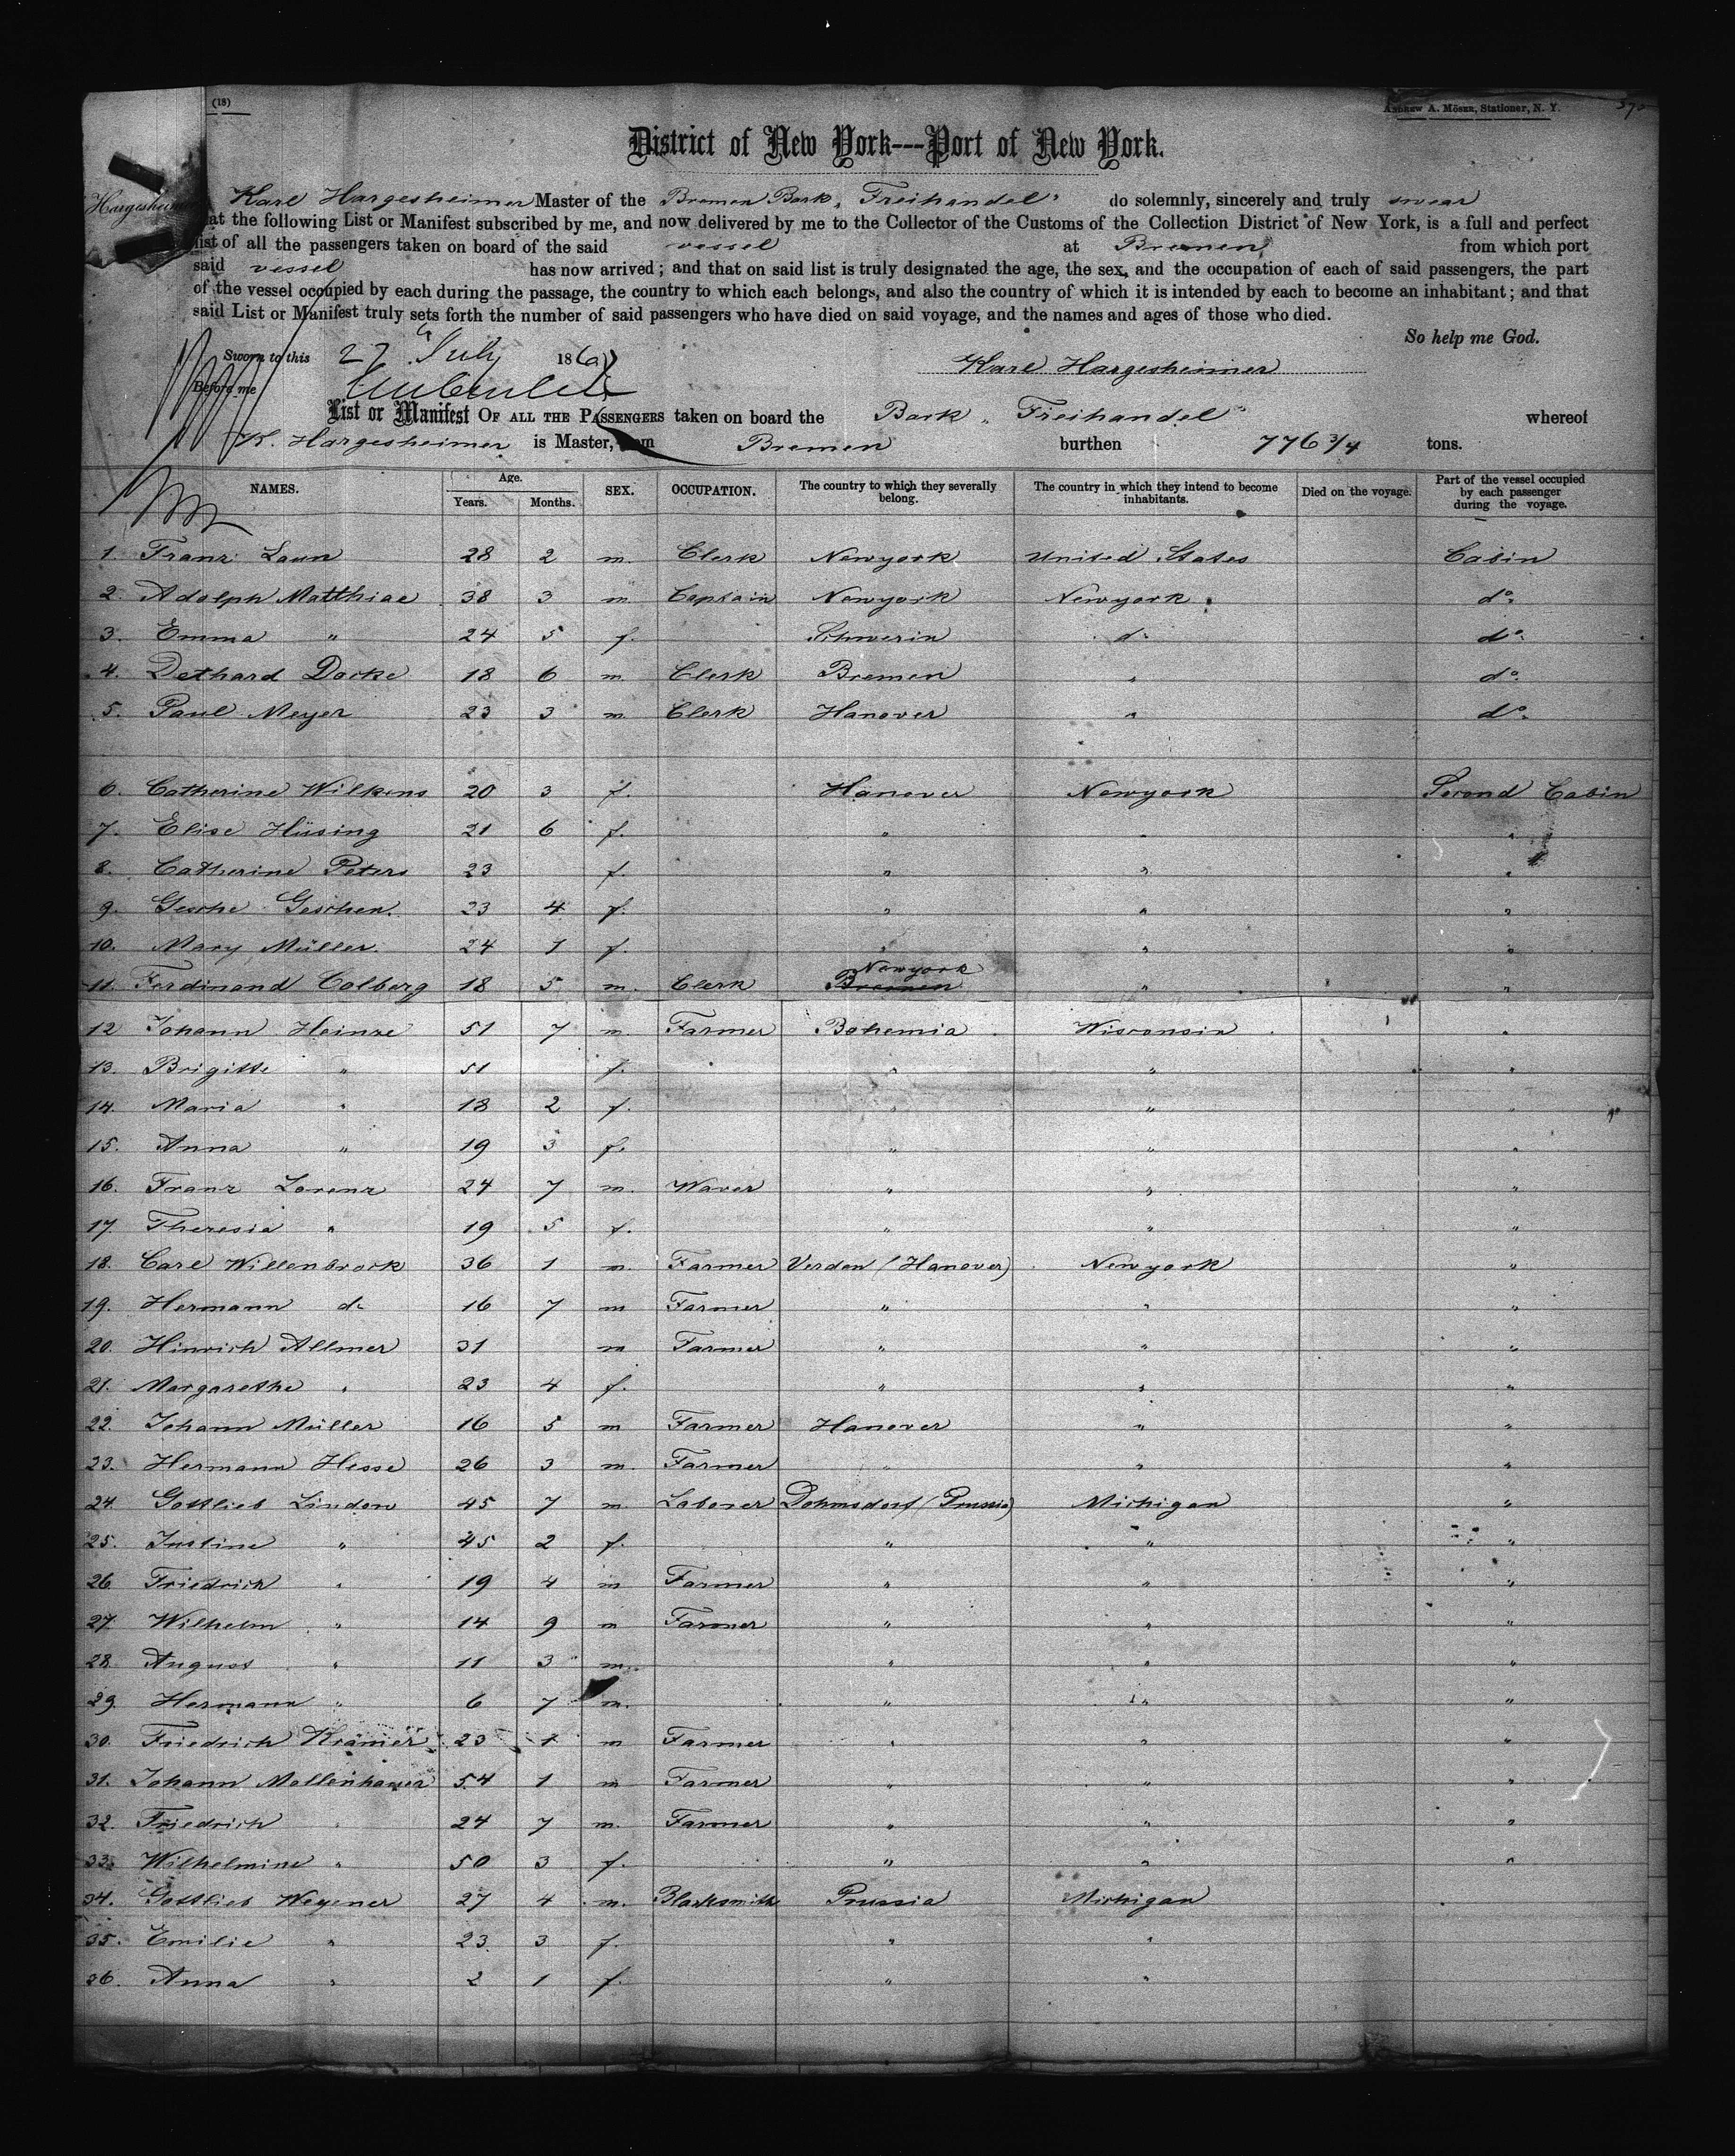 (18)
Andrew A. Möser, Stationer, N. Y.
District of New York---Port of New York.
Hargesheimer
Karl Hargesheimer Master of the Bremen Bark „Freihandel" do solemnly, sincerely and truly swear
at the following List or Manifest subscribed by me, and now delivered by me to the Collector of the Customs of the Collection District of New York, is a full and perfect
list of all the passengers taken on board of the said vessel at Bremen, from which port
said vessel has now arrived; and that on said list is truly designated the age, the sex, and the occupation of each of said passengers, the part
of the vessel occupied by each during the passage, the country to which each belongs, and also the country of which it is intended by each to become an inhabitant; and that
said List or Manifest truly sets forth the number of said passengers who have died on said voyage, and the names and ages of those who died.
So help me God.
Sworn to this 27 July 186
Karl Hargesheimer
Before me
List or Manifest OF ALL THE PASSENGERS taken on board the Bark „Freihandel" whereof
K. Hargesheimer is Master, from Bremen burthen 776 3/4 tons.
NAMES. Age. Years. Months. SEX. OCCUPATION. The country to which they severally belong. The country in which they intend to become inhabitants. Died on the voyage. Part of the vessel occupied by each passenger during the voyage.
1. Franz Laun 28 2 m. Clerk Newyork United States Cabin
2. Adolph Matthiae 38 3 m Captain Newyork Newyork do.
3. Emma " 24 5 f. Schwerin do do.
4. Dethard Docke 18 6 m Clerk Bremen " do.
5. Paul Meyer 23 3 m Clerk Hanover " do.
6. Catherine Wilkens 20 3 f. Hanover Newyork Second Cabin
7. Elise Hüsing 21 6 f. " " "
8. Catherine Peters 23 f. " " "
9. Gesche Geschen. 23 4 f. " " "
10. Mary Müller. 24 1 f. " " "
11. Ferdinand Colberg 18 5 m. Clerk Bremen Newyork " "
12 Johann Heinze 51 7 m Farmer Bohemia Wisconsin "
13. Brigitte " 51 f. " " "
14. Maria " 18 2 f. " " "
15. Anna " 19 3 f. " " "
16. Franz Lorenz 24 7 m. Waver " " "
17. Theresia " 19 5 f. " " "
18. Carl Willenbrock 36 1 m. Farmer Verden (Hanover) Newyork "
19. Hermann do 16 7 m Farmer " " "
20. Hinrich Allmer 31 m Farmer " " "
21. Margarethe " 23 4 f. " " "
22. Johann Müller 16 5 m Farmer Hanover " "
23. Hermann Hesse 26 3 m. Farmer " " "
24. Gottlieb Linden 45 7 m. Laborer Dohmsdorf (Prussia) Michigan "
25. Justine " 45 2 f. " " "
26. Friedrich " 19 4 m Farmer " " "
27. Wilhelm " 14 9 m Farmer " " "
28. August " 11 3 m. " " "
29. Hermann " 6 7 m. " " "
30. Friedrich Krämer 23 1 m Farmer " " "
31. Johann Mollenhauer 54 1 m Farmer " " "
32. Friedrich " 24 7 m. Farmer " " "
33. Wilhelmine " 50 3 f. " " "
34. Gottlieb Wegener 27 4 m. Blacksmith Prussia Michigan
35. Emilie " 23 3 f. " "
36. Anna " 2 1 f. " "